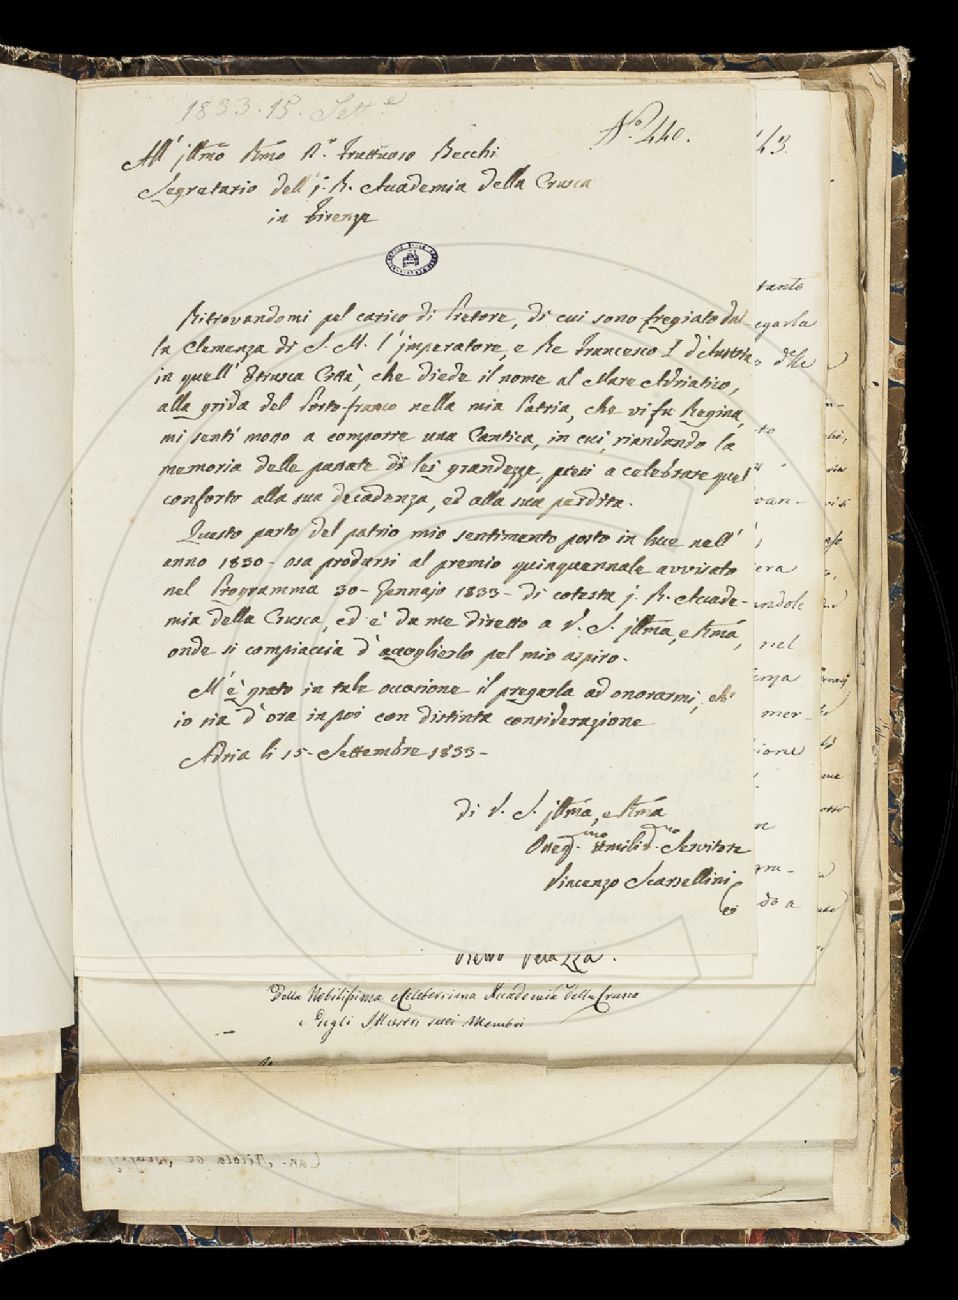 1833. 15. Sett.e
N.o 440.
All' Jllmo Rmo A.e Fruttuoso Becchi
Segretario dell' J. R. Accademia della Crusca
in Firenze
Ritrovandomi pel carico di Pretore, di cui sono fregiato dal-
la Clemenza di S. M. l'imperatore, e Re Francesco I d'Austria
in quell' Etrusca Città, che diede il nome al Mare Adriatico,
alla grida del Porto-franco nella mia Patria, che vi fu Regina,
mi sentì mosso a comporre una Cantica, in cui, riandando la
memoria delle passate di lei grandezze, presi a celebrare quel
conforto alla sua decadenza, ed alla sua perdita.
Questo parto del patrio mio sentimento posto in luce nell'
anno 1830 - osa prodursi al premio quinquennale avvisato
nel Programma 30 - Gennajo 1833 - di cotesta J. R. Accade-
mia della Crusca, ed è da me diretto a V. S. Jllma, e Rma,
onde si compiaccia d'accoglierlo pel mio aspiro.
M'è grato in tale occasione il pregarla ad onorarmi, ch'
io sia d'ora in poi con distinta considerazione
Adria li 15 - Settembre 1833 -
di V. S. Jllma, e Rma
Osseq.mo Umiliss.mo Servitore
Vincenzo Scarsellini
43.
tanto
egarla
delle
to
van-
era
andole
nel
mer-
zione
do a
Della Nobilissima e Celeberrima Accademia della Crusca
e Degli Illustri suoi Membri